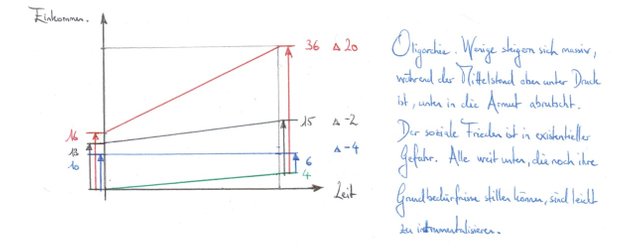 Einkommen.
36 Δ 20
16
13
10
15 Δ -2
Δ -4
6
4
Zeit
Oligarchie. Wenige steigern sich massiv,
während der Mittelstand oben unter Druck
ist, unten in die Armut abrutscht.
Der soziale Frieden ist in existentieller
Gefahr. Alle weit unten, die noch ihre
Grundbedürfnisse stillen können, sind leicht
zu instrumentalisieren.